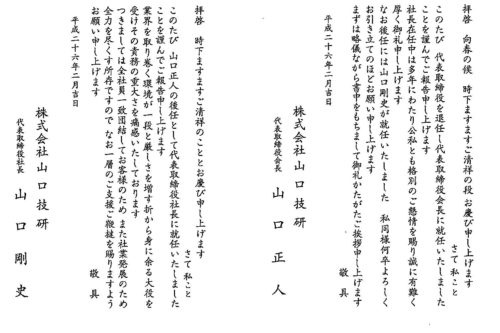 拝啓　向春の候　時下ますますご清祥の段 お慶び申し上げます
さて 私こと
このたび 代表取締役を退任し代表取締役会長に就任いたしました
ことを謹んでご報告申し上げます
社長在任中は多年にわたり公私とも格別のご懇情を賜り誠に有難く
厚く御礼申し上げます
なお後任には山口剛史が就任いたしました　私同様何卒よろしく
お引き立てのほどお願い申し上げます
まずは略儀ながら書中をもちまして御礼かたがたご挨拶申し上げます
敬具
平成二十六年二月吉日
株式会社山口技研
代表取締役会長　山口正人
拝啓　時下ますますご清祥のこととお慶び申し上げます
さて 私こと
このたび 山口正人の後任として代表取締役社長に就任いたしました
ことを謹んでご報告申し上げます
業界を取り巻く環境が一段と厳しさを増す折から身に余る大役を
受けその責務の重大さを痛感いたしております
つきましては全社員一致団結してお客様のため また社業発展のため
全力を尽くす所存ですので なお一層のご支援ご鞭撻を賜りますよう
お願い申し上げます
敬具
平成二十六年二月吉日
株式会社山口技研
代表取締役社長　山口剛史